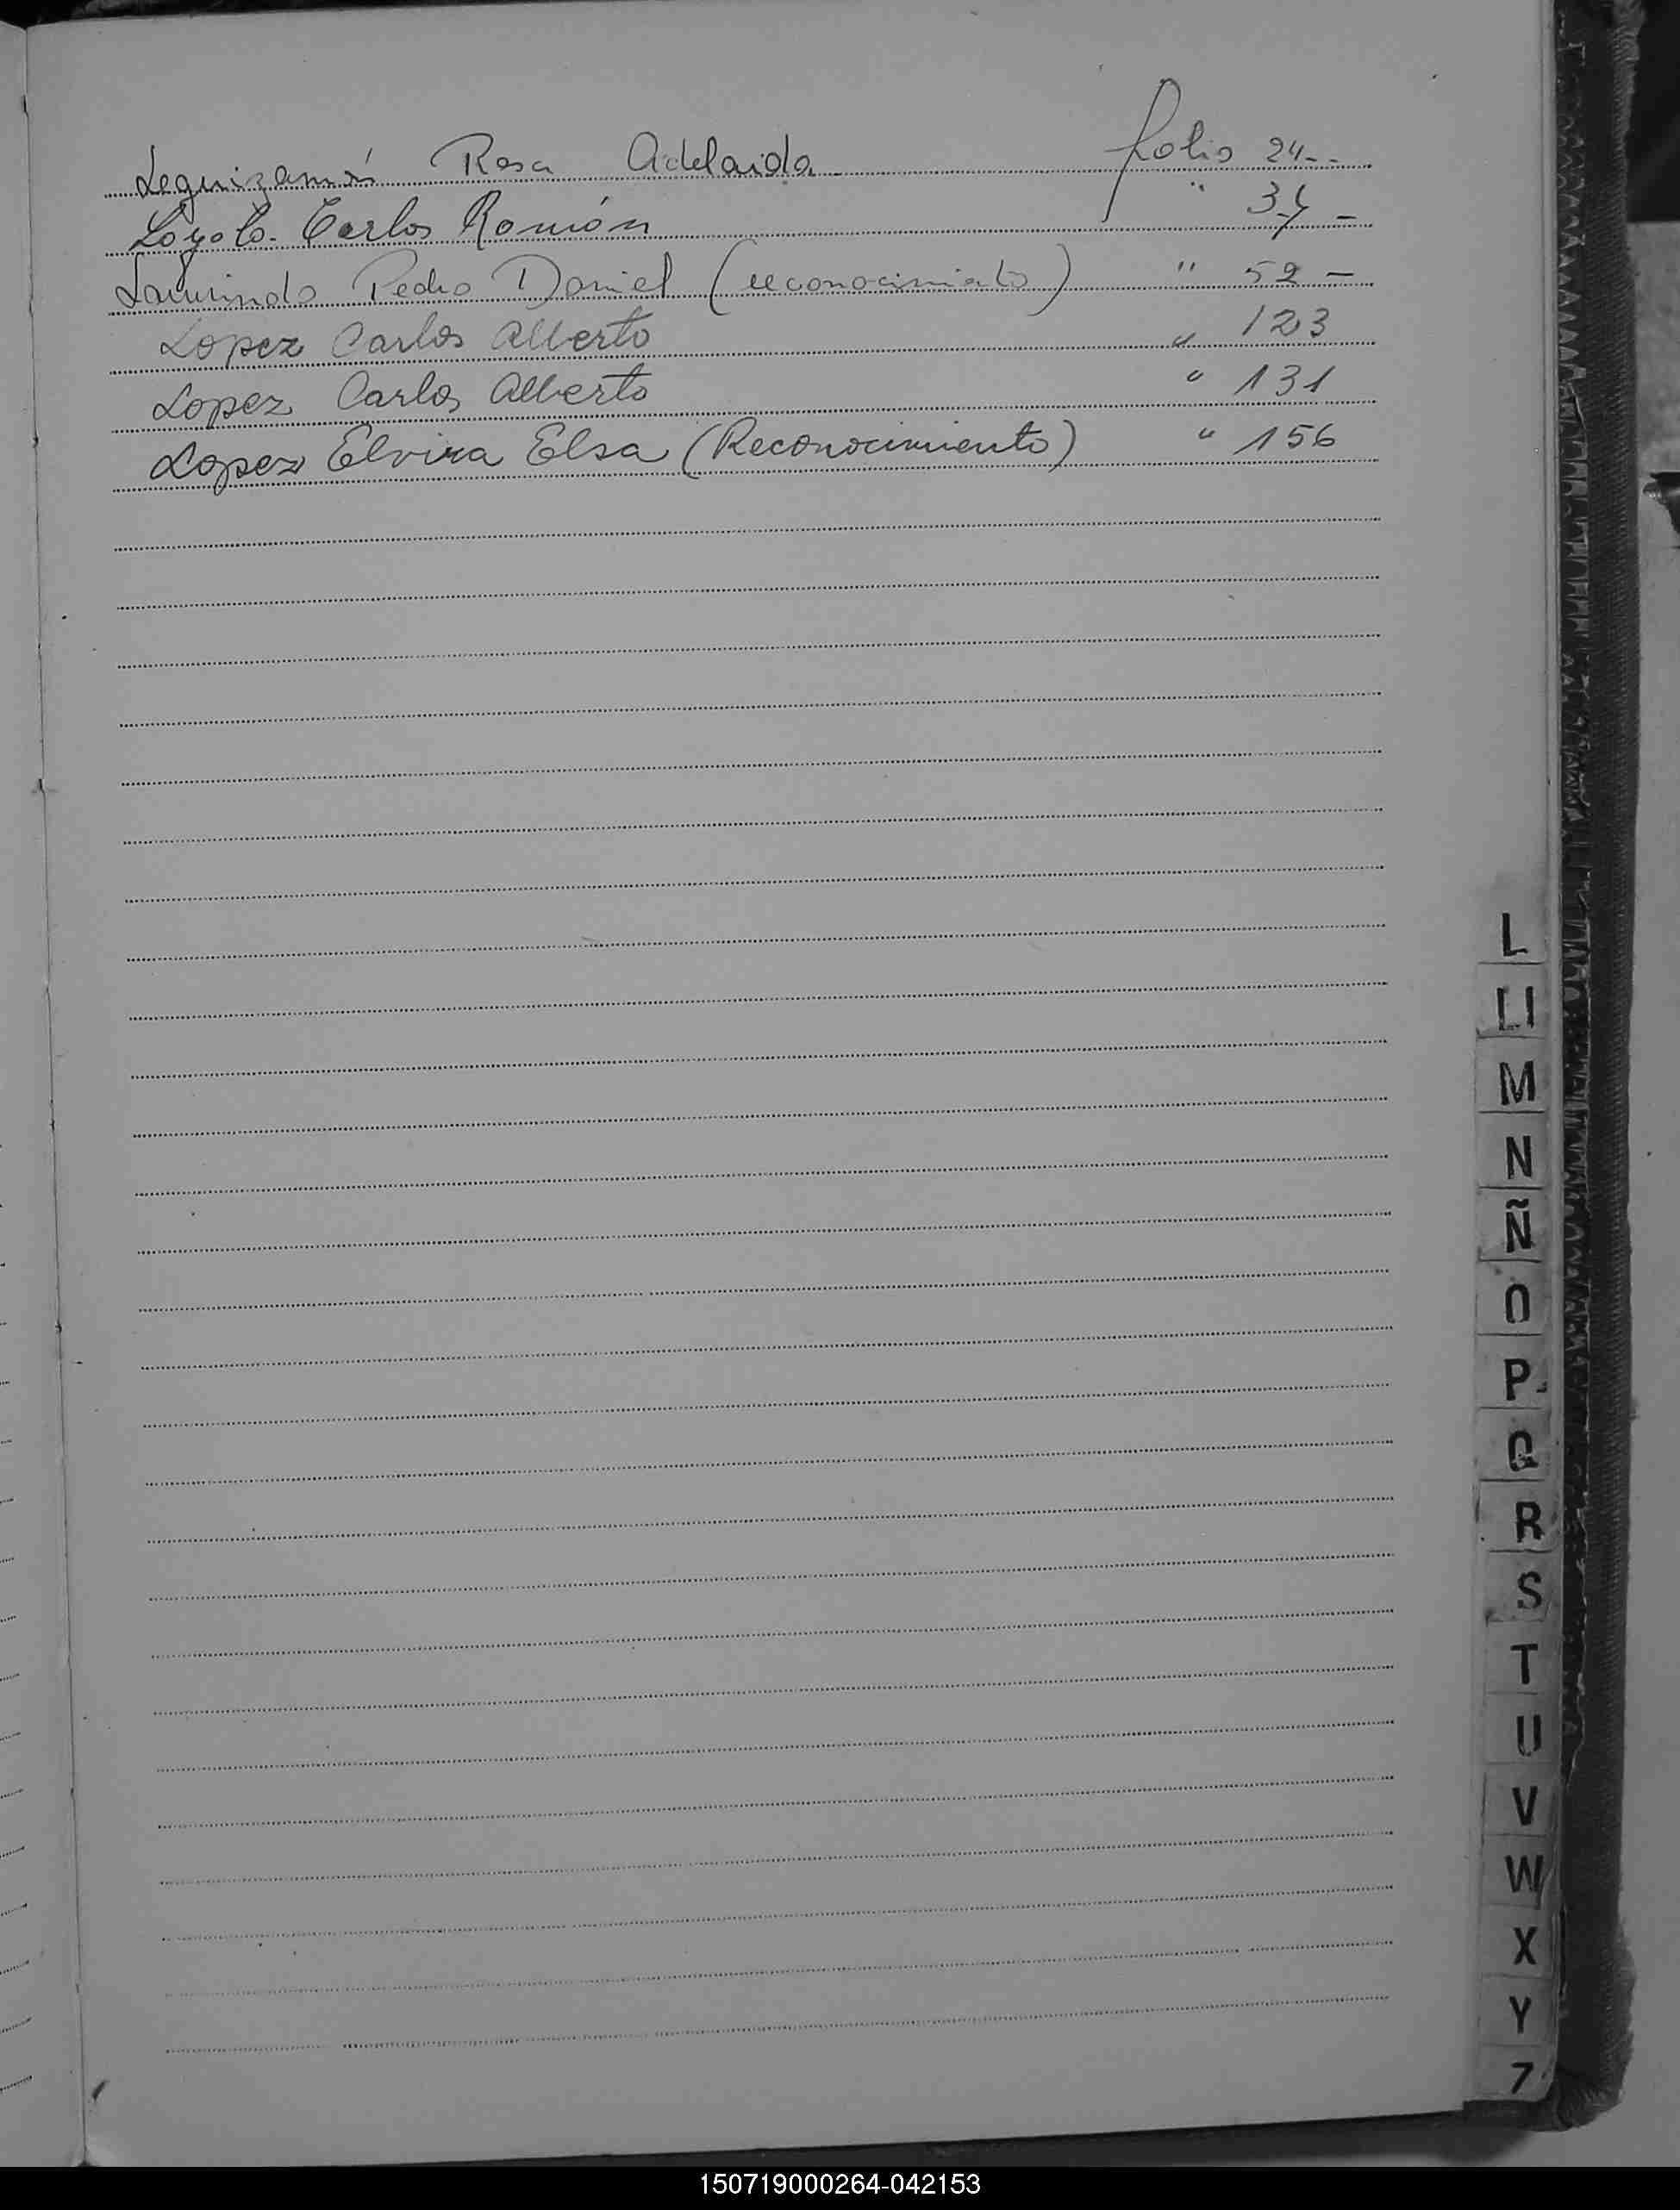 Leguizamón Rosa Adelaida folio 24--
Loyola. Carlos Ramón " 34 -
Pedro Daniel (reconocimiento) " 52 -
Lopez Carlos Alberto " 123
Lopez Carlos Alberto " 131
Lopez Elvira Elsa (Reconocimiento) " 156
L
Ll
M
N
Ñ
O
P
Q
R
S
T
U
V
W
X
Y
150719000264-042153